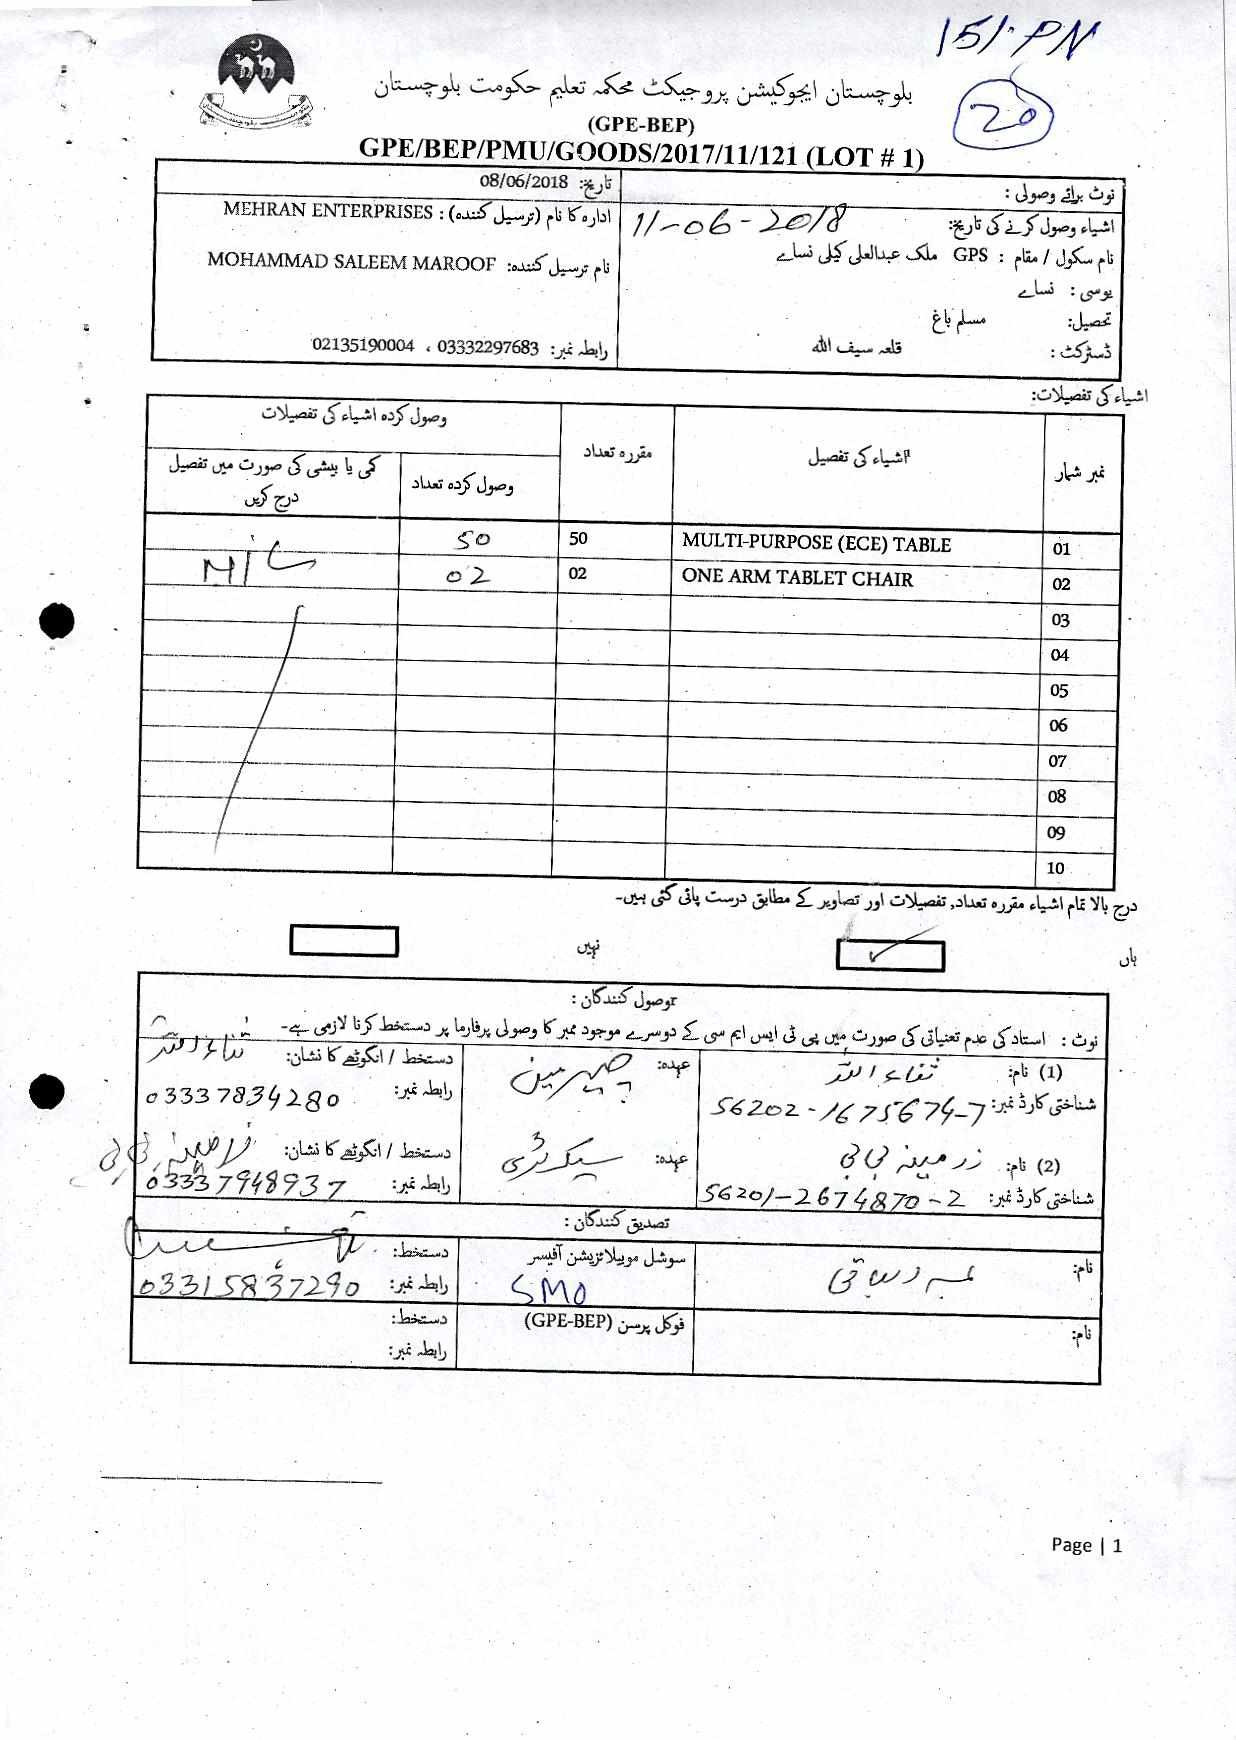 151-PN
20
بلوچستان ایجوکیشن پروجیکٹ محکمہ تعلیم حکومت بلوچستان
(GPE-BEP)
GPE/BEP/PMU/GOODS/2017/11/121 (LOT # 1)
نوٹ برائے وصولی :
اشیاء وصول کرنے کی تاریخ: 11-06-2018
نام سکول / مقام : GPS ملک عبدالعلی کیلی نسائے
یوسی : نسائے
تحصیل: مسلم باغ
ڈسٹرکٹ : قلعہ سیف اللہ
تاریخ: 08/06/2018
ادارہ کا نام (ترسیل کنندہ) : MEHRAN ENTERPRISES
نام ترسیل کنندہ: MOHAMMAD SALEEM MAROOF
رابطہ نمبر: 03332297683 ، 02135190004
اشیاء کی تفصیلات:
نمبر شمار اشیاء کی تفصیل مقررہ تعداد وصول کردہ اشیاء کی تفصیلات
وصول کردہ تعداد کمی یا بیشی کی صورت میں تفصیل درج کریں
01 MULTI-PURPOSE (ECE) TABLE 50 50
02 ONE ARM TABLET CHAIR 02 02
03
04
05
06
07
08
09
10
درج بالا تمام اشیاء مقررہ تعداد, تفصیلات اور تصاویر کے مطابق درست پائی گئی ہیں۔
ہاں ✓ نہیں
وصول کنندگان :
نوٹ : استاد کی عدم تعنیاتی کی صورت میں پی ٹی ایس ایم سی کے دوسرے موجود ممبر کا وصولی پرفارما پر دستخط کرنا لازمی ہے۔
(1) نام: ثناء اللہ عہدہ: چیرمین دستخط / انگوٹھے کا نشان: ثناء اللہ
شناختی کارڈ نمبر: 56202-1675674-7 رابطہ نمبر: 03337834280
(2) نام: زرمینہ بی بی عہدہ: سیکرٹری دستخط / انگوٹھے کا نشان: زرمینہ بی بی
شناختی کارڈ نمبر: 56201-2674870-2 رابطہ نمبر: 03337948937
تصدیق کنندگان :
نام: سوشل موبیلائزیشن آفیسر دستخط:
SMO رابطہ نمبر: 03315837290
نام: فوکل پرسن (GPE-BEP) دستخط:
رابطہ نمبر:
Page | 1